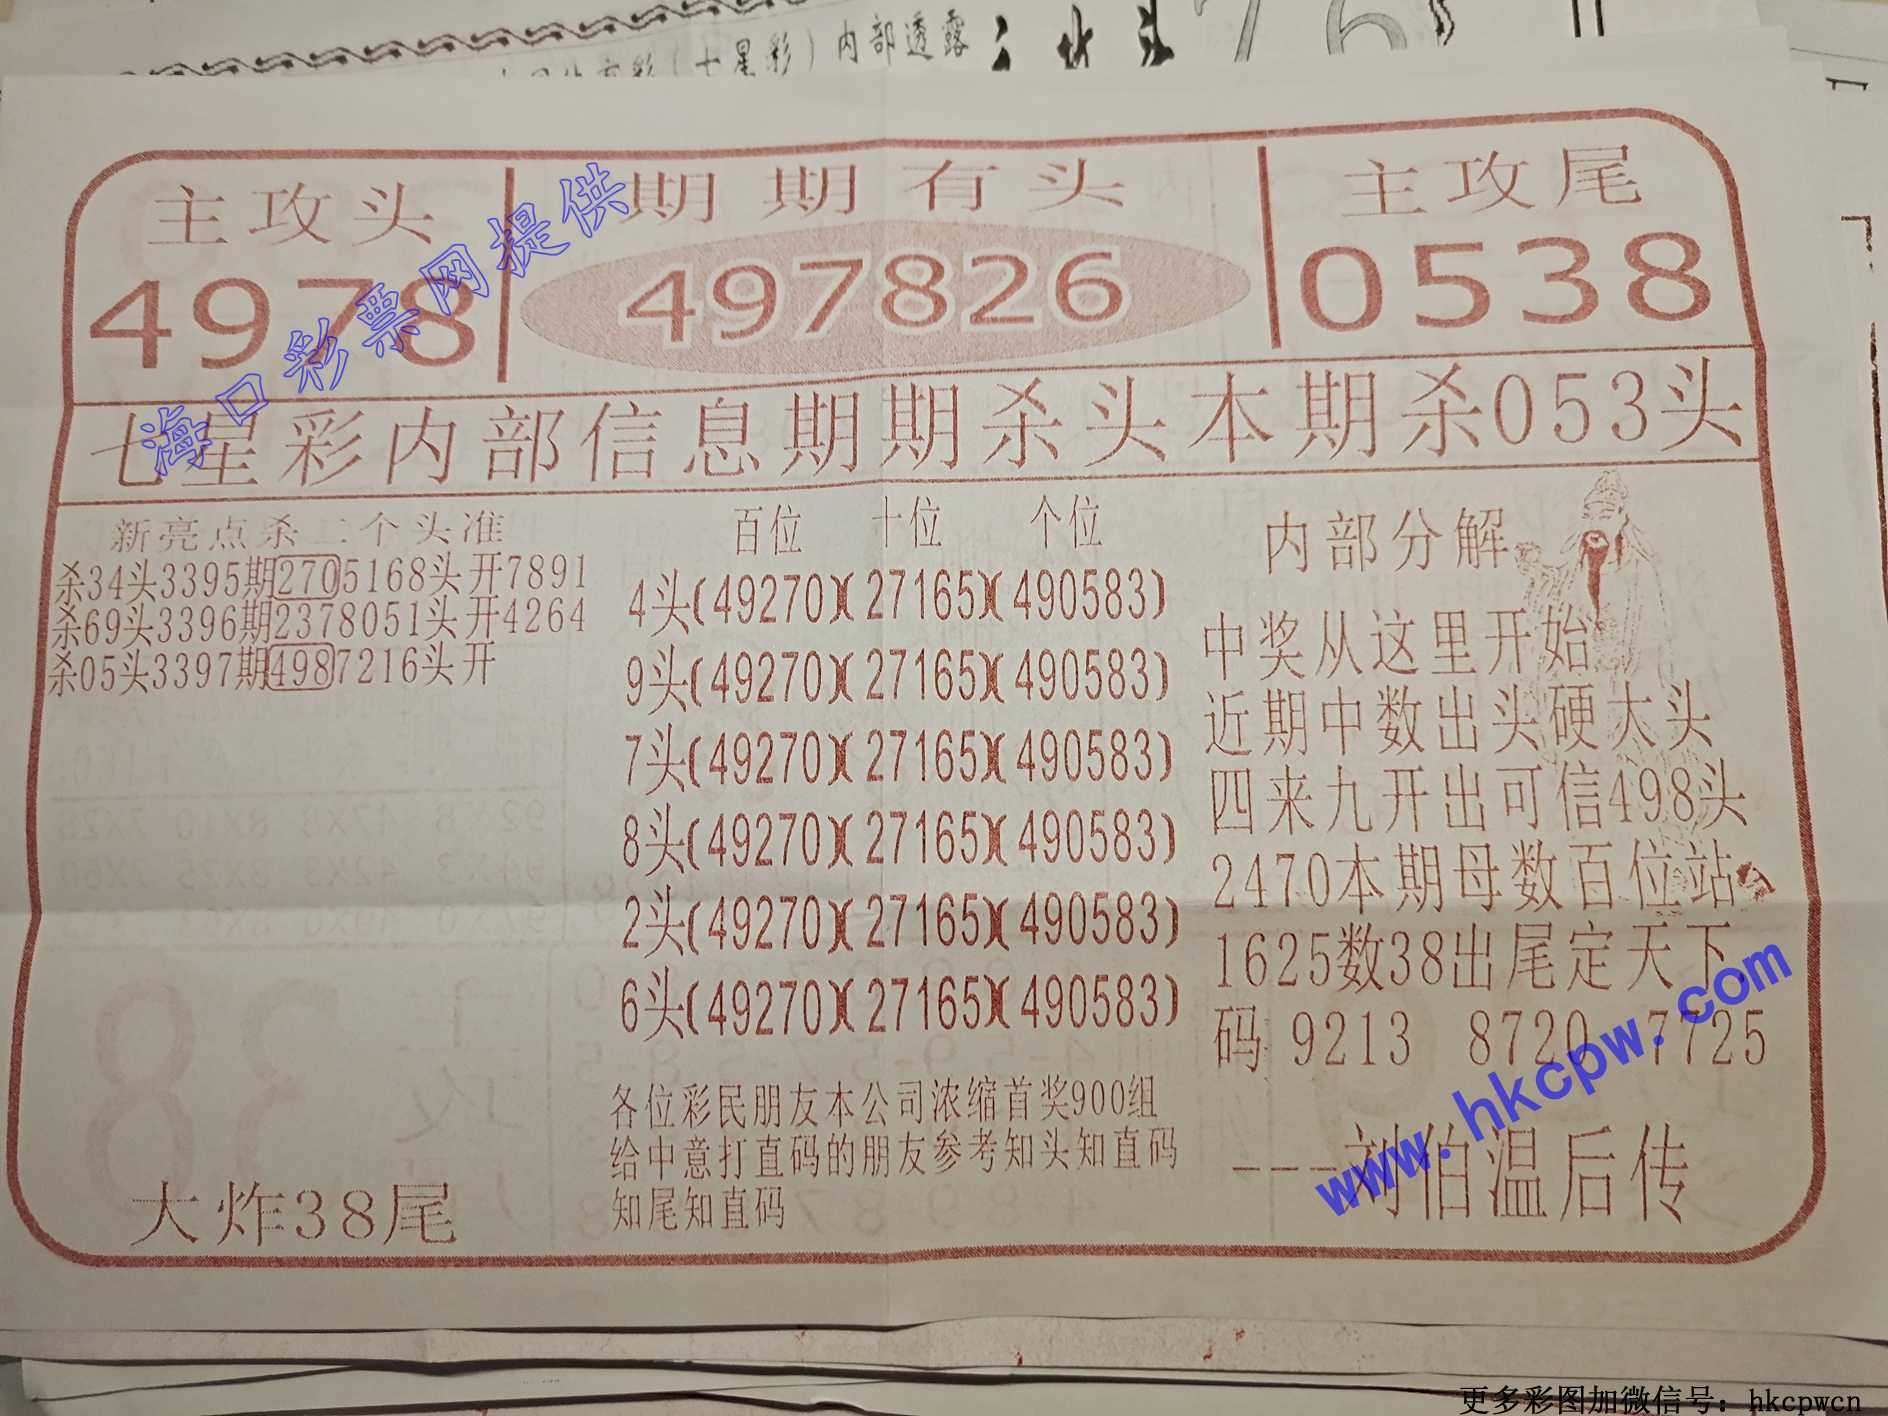 （七星彩）内部透露
主攻头
期期有头
主攻尾
4978
497826
0538
海口彩票网提供
七星彩内部信息期期杀头本期杀053头
新亮点杀二个头准
杀34头3395期2705168头开7891
杀69头3396期2378051头开4264
杀05头3397期4987216头开
大炸38尾
百位 十位 个位
4头(49270)(27165)(490583)
9头(49270)(27165)(490583)
7头(49270)(27165)(490583)
8头(49270)(27165)(490583)
2头(49270)(27165)(490583)
6头(49270)(27165)(490583)
各位彩民朋友本公司浓缩首奖900组
给中意打直码的朋友参考知头知直码
知尾知直码
内部分解
中奖从这里开始
近期中数出头硬太头
四来九开出可信498头
2470本期母数百位站
1625数38出尾定天下
码 9213 8720 7725
---刘伯温后传
www.hkcpw.com
更多彩图加微信号：hkcpwcn